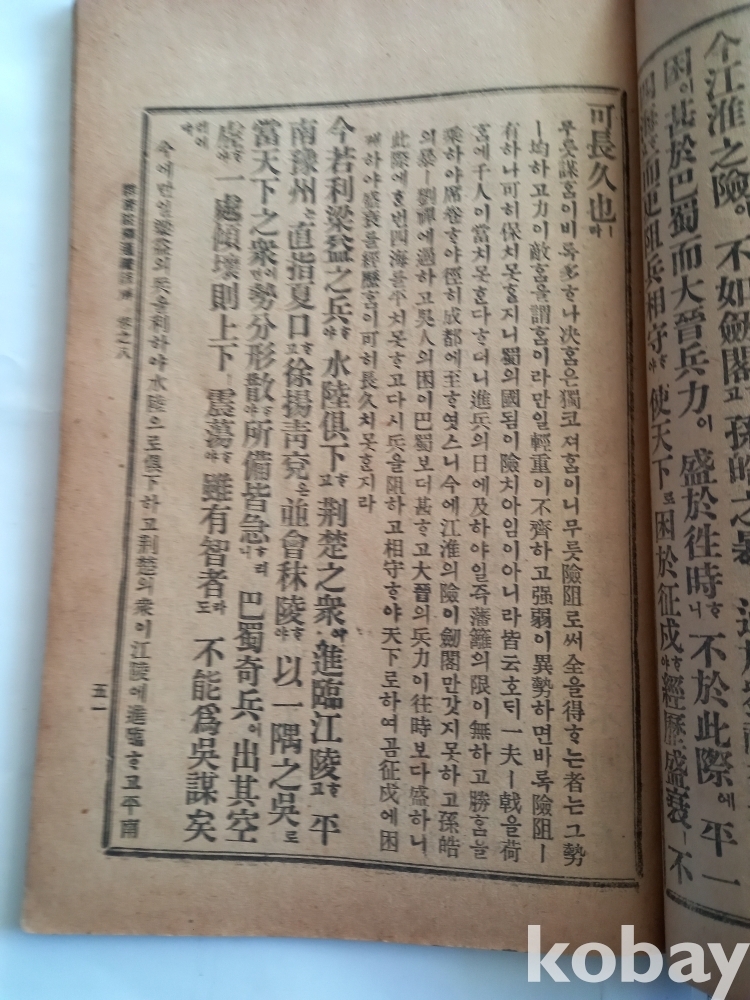 今江淮之險이 不如劍閣고 孫皓之暴
困이 甚於巴蜀而大晉兵力이 盛於往時ᄒᆞ니 不於此際에 平一
四海而更阻兵相守ᄒᆞ야 使天下로 困於征戍ᄒᆞ야 經歷盛衰ㅣ 不
可長久也ㅣ라
무릇謀홈이비록多ᄒᆞ나決홈은獨코져홈이니무릇險阻로써全을得ᄒᆞᄂᆞᆫ者는그勢
ㅣ均하고力이敵홈을謂홈이라만일輕重이不齊하고强弱이異勢하면바록險阻ㅣ
有하나可히保치못ᄒᆞᆯ지니蜀의國됨이險치아임이아니라皆云호ᄃᆡ一夫ㅣ戟을荷
홈에千人이當치못ᄒᆞᆫ다ᄒᆞ더니進兵의日에及하야일즉藩籬의限이無하고勝홈을
乘하야席卷ᄒᆞ야徑히成都에至ᄒᆞ엿스니今에江淮의險이劍閣만갓지못하고孫皓
의暴ㅣ劉禪에過하고吳人의困이巴蜀보더甚ᄒᆞ고大晉의兵力이往時보다盛하니
此際에ᄒᆞᆫ번四海를平치못ᄒᆞ고다시兵을阻하고相守ᄒᆞ야天下로하여곰征戍에困
케하야盛衰를經歷홈이可히長久치못ᄒᆞᆯ지라
今若利梁益之兵ᄒᆞ야 水陸俱下ᄒᆞ고 荆楚之衆이 進臨江陵ᄒᆞ고 平
南豫州는 直指夏口ᄒᆞ고 徐揚靑兗은 並會秣陵ᄒᆞ야 以一隅之吳로
當天下之衆이면 勢分形散ᄒᆞ야 所備皆急ᄒᆞ리니 巴蜀奇兵이 出其空
虛ᄒᆞ야 一處傾壞則上下ㅣ 震蕩ᄒᆞ야 雖有智者라도 不能爲吳謀矣
今에만일梁益의兵을利하야水陸으로俱下하고荆楚의衆이江陵에進臨ᄒᆞ고平南
卷之八
五一
kobay